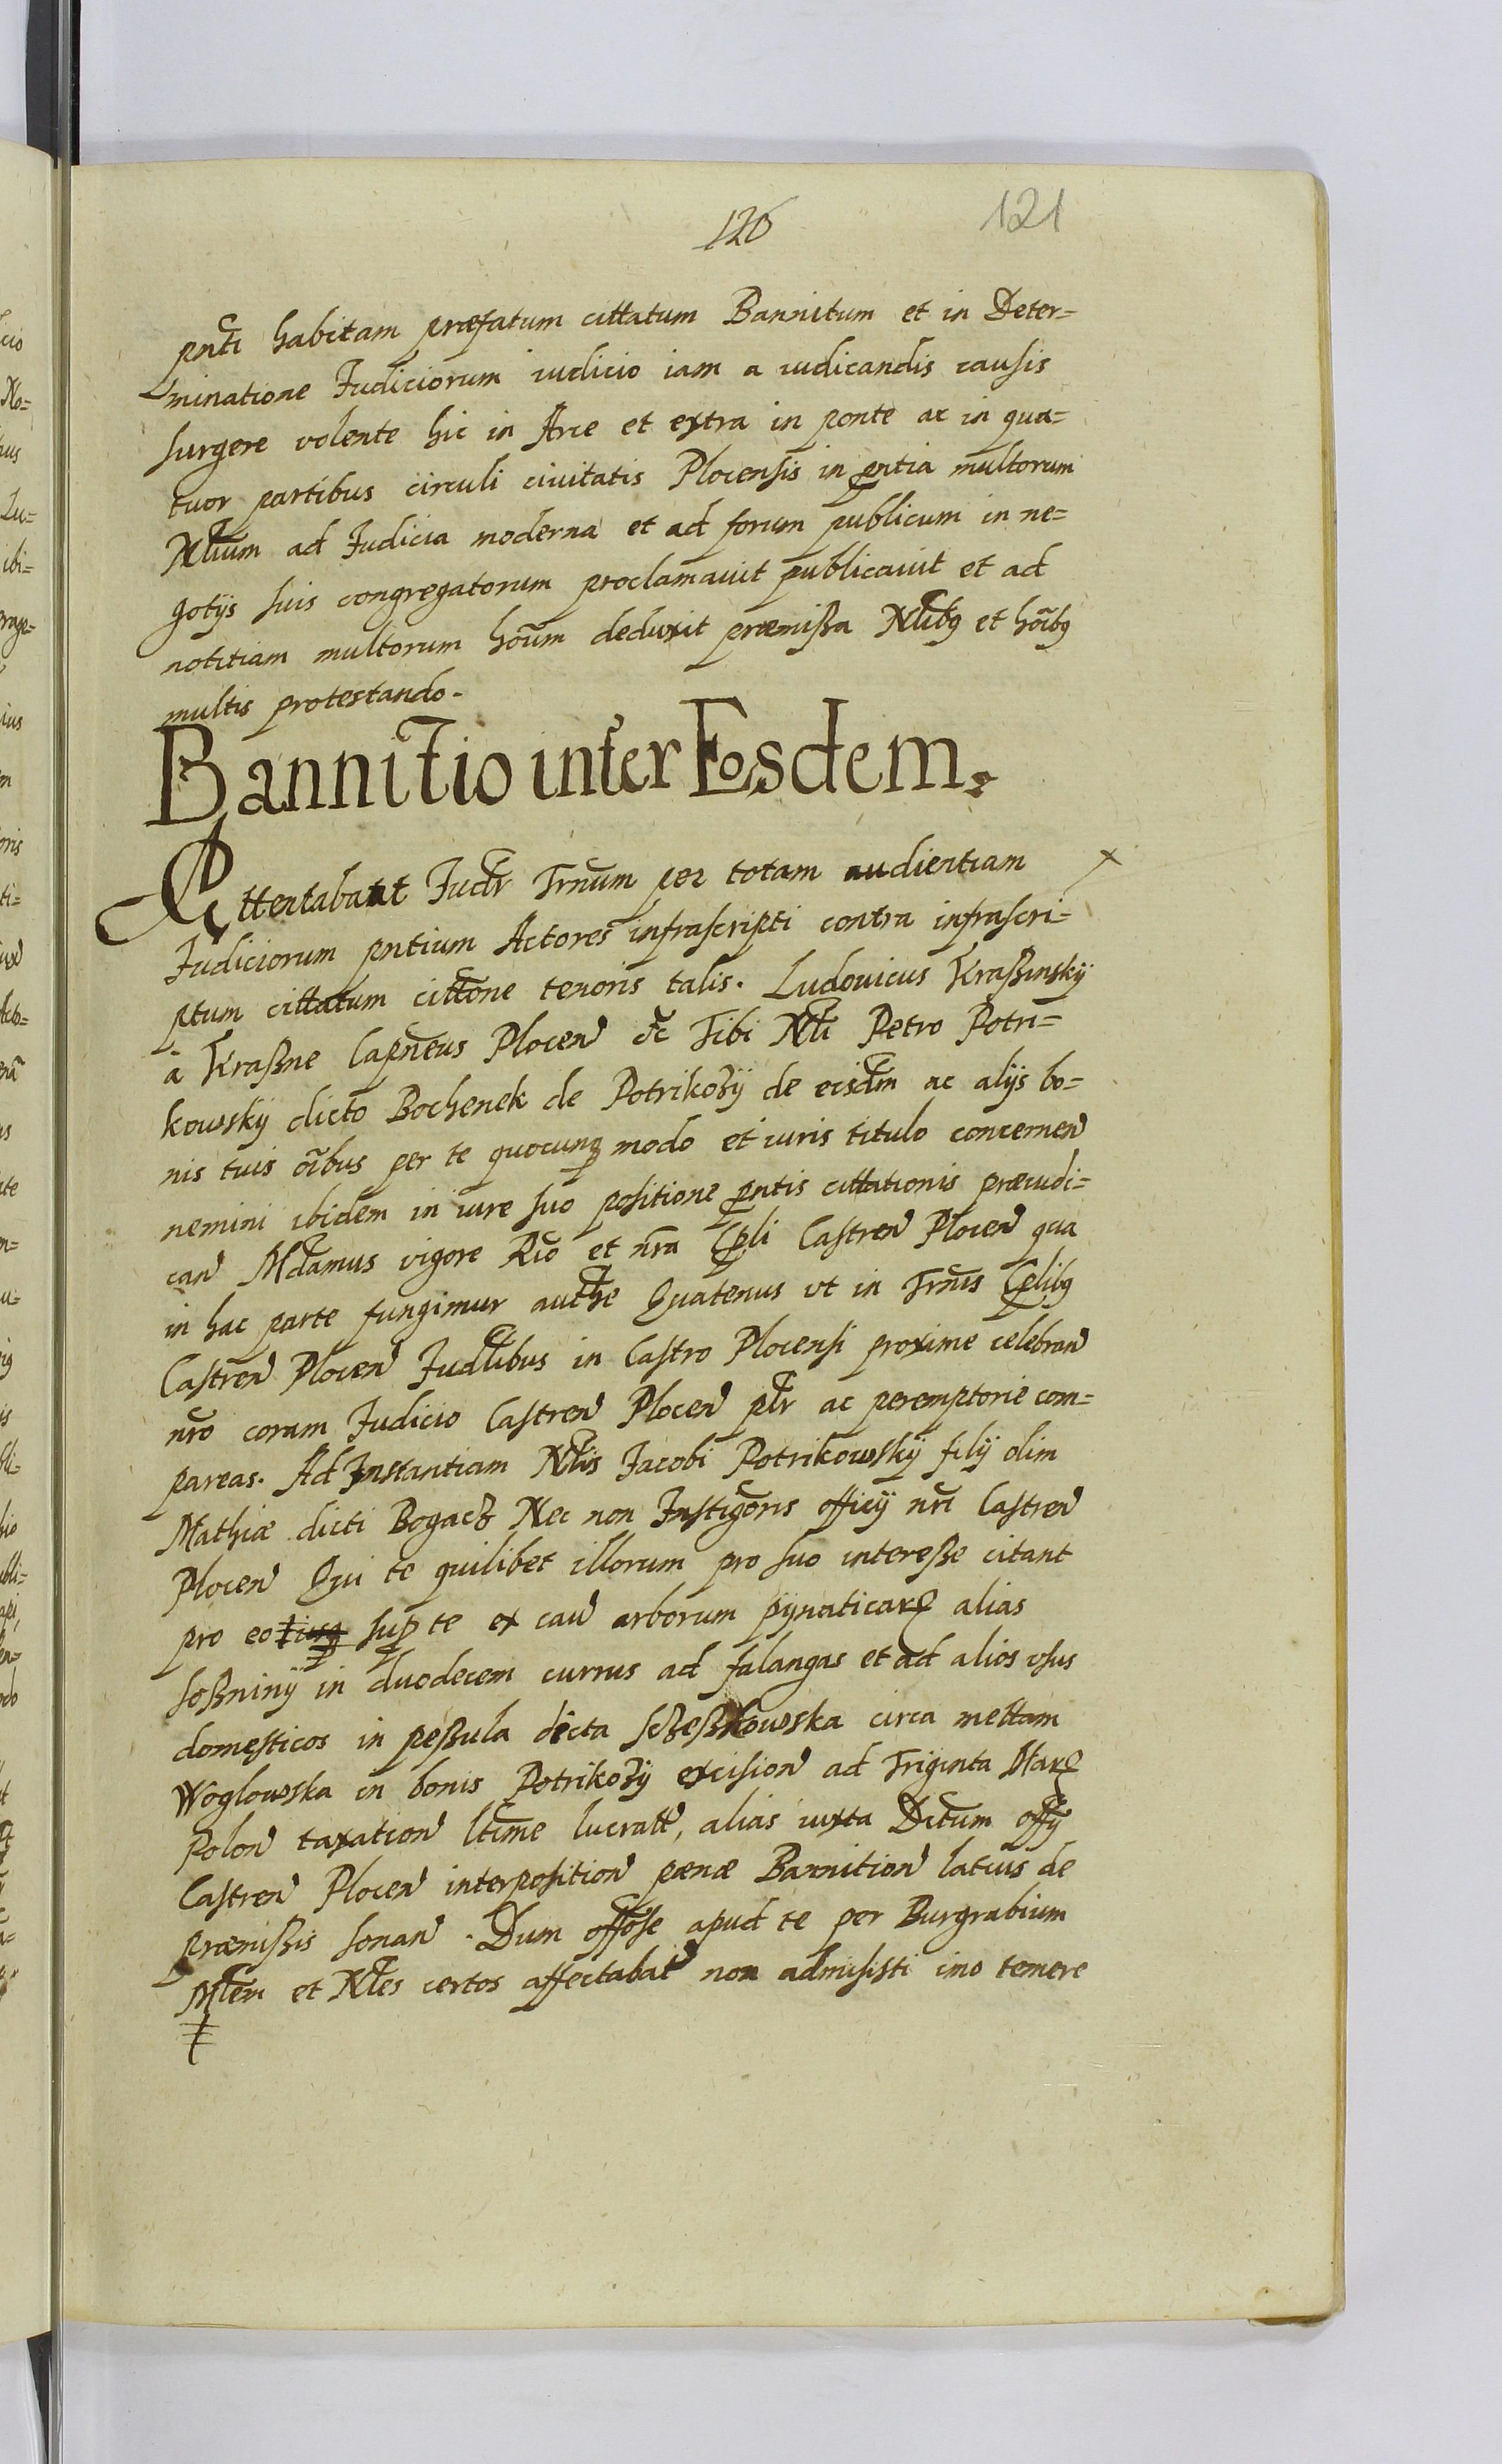 126
121
pnti habitam præfatum cittatum Bannitum et in Deter=
minatione Iudiciorum iudicio iam a iudicandis causis
surgere volente hic in Arce et extra in ponte ac in qua=
tuor partibus circuli ciuitatis Plocensis in pntia multorum
Nlium ad Iudicia moderna et ad forum publicum in ne=
gotijs suis congregatorum proclamauit publicauit et ad
notitiam multorum hoium deduxit præmißa Nlibq et hoibq
multis protestando.
Bannitio inter Eosdem.
Attentabant Iudr Trnum per totam audientiam x
Iudiciorum pntium Actores infrascripti contra infrascri=
ptum cittatum cittone tenoris talis. Ludouicus Kraßinskÿ
à Kraßne Capneus Plocen etc Tibi Nli Petro Potri=
kowskÿ dicto Bochenek de Potrikozÿ de eisdm ac alijs bo=
nis tuis oibus per te quocunq modo et iuris titulo concernen
nemini ibidem in iure suo positione pntis cittationis præiudi=
can Mdamus vigore Rio et nra Cpli Castren Plocen qua
in hac parte fungimur authe Quatenus vt in Trnis Cplibq
Castren Plocen Iudlibus in Castro Plocensi proxime celebran
nro coram Iudicio Castren Plocen plr ac peremptorie com=
pareas. Ad Instantiam Nlis Iacobi Potrikowskÿ filij olim
Mathiæ dicti Bogacz Nec non Instigoris officij nri Castren
Plocen Qui te quilibet illorum pro suo intereße citant
pro eo sup te ex cau arborum pÿnaticarum alias
soßninÿ in duodecem currus ad falangas et ad alios vsus
domesticos in peßula dicta sczeßkowska circa mettam
Woglowska in bonis Potrikozÿ excision ad Triginta Mar
Polon taxation ltime lucratt, alias iuxta Dctum offÿ
Castren Plocen interposition pænæ Bannition latius de
præmißis sonan. Dum offose apud te per Burgrabium
Mlem et Nles certos affectabat non admisisti imo temere